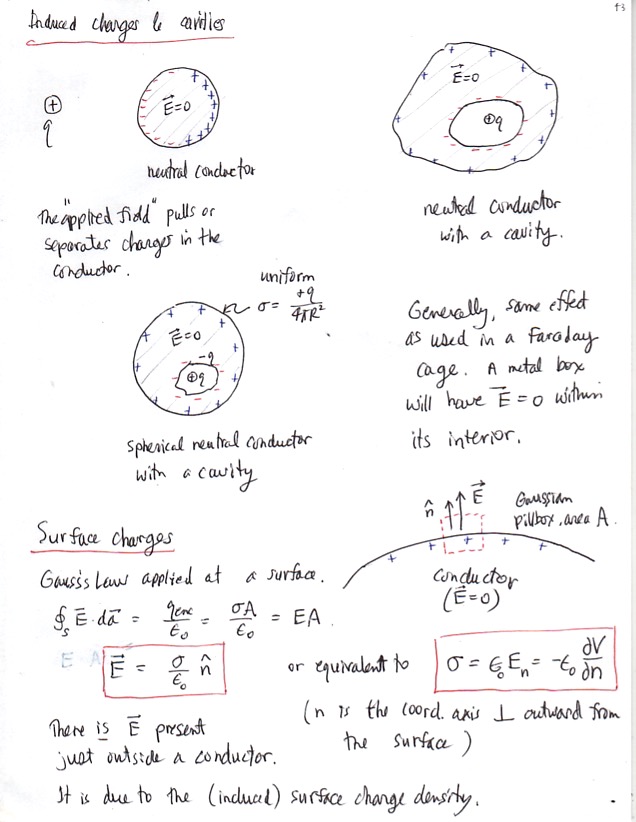 43
Induced charges & cavities
E⃗=0
+
q
neutral conductor
The "applied field" pulls or
separates charges in the
conductor.
E⃗=0
+q
neutral conductor
with a cavity.
uniform
σ = +q/4πR²
E⃗=0
-q
+q
spherical neutral conductor
with a cavity
Generally, same effect
as used in a Faraday
cage. A metal box
will have E⃗=0 within
its interior.
Surface charges
n̂ E⃗
Gaussian
pillbox, area A.
conductor
(E⃗=0)
Gauss's Law applied at a surface.
∮ₛ E⃗·da⃗ = qenc/ε₀ = σA/ε₀ = EA.
E⃗ = σ/ε₀ n̂
or equivalent to
σ = ε₀Eₙ = -ε₀ ∂V/∂n
(n is the coord. axis ⊥ outward from
the surface)
There is E⃗ present
just outside a conductor.
It is due to the (induced) surface charge density.